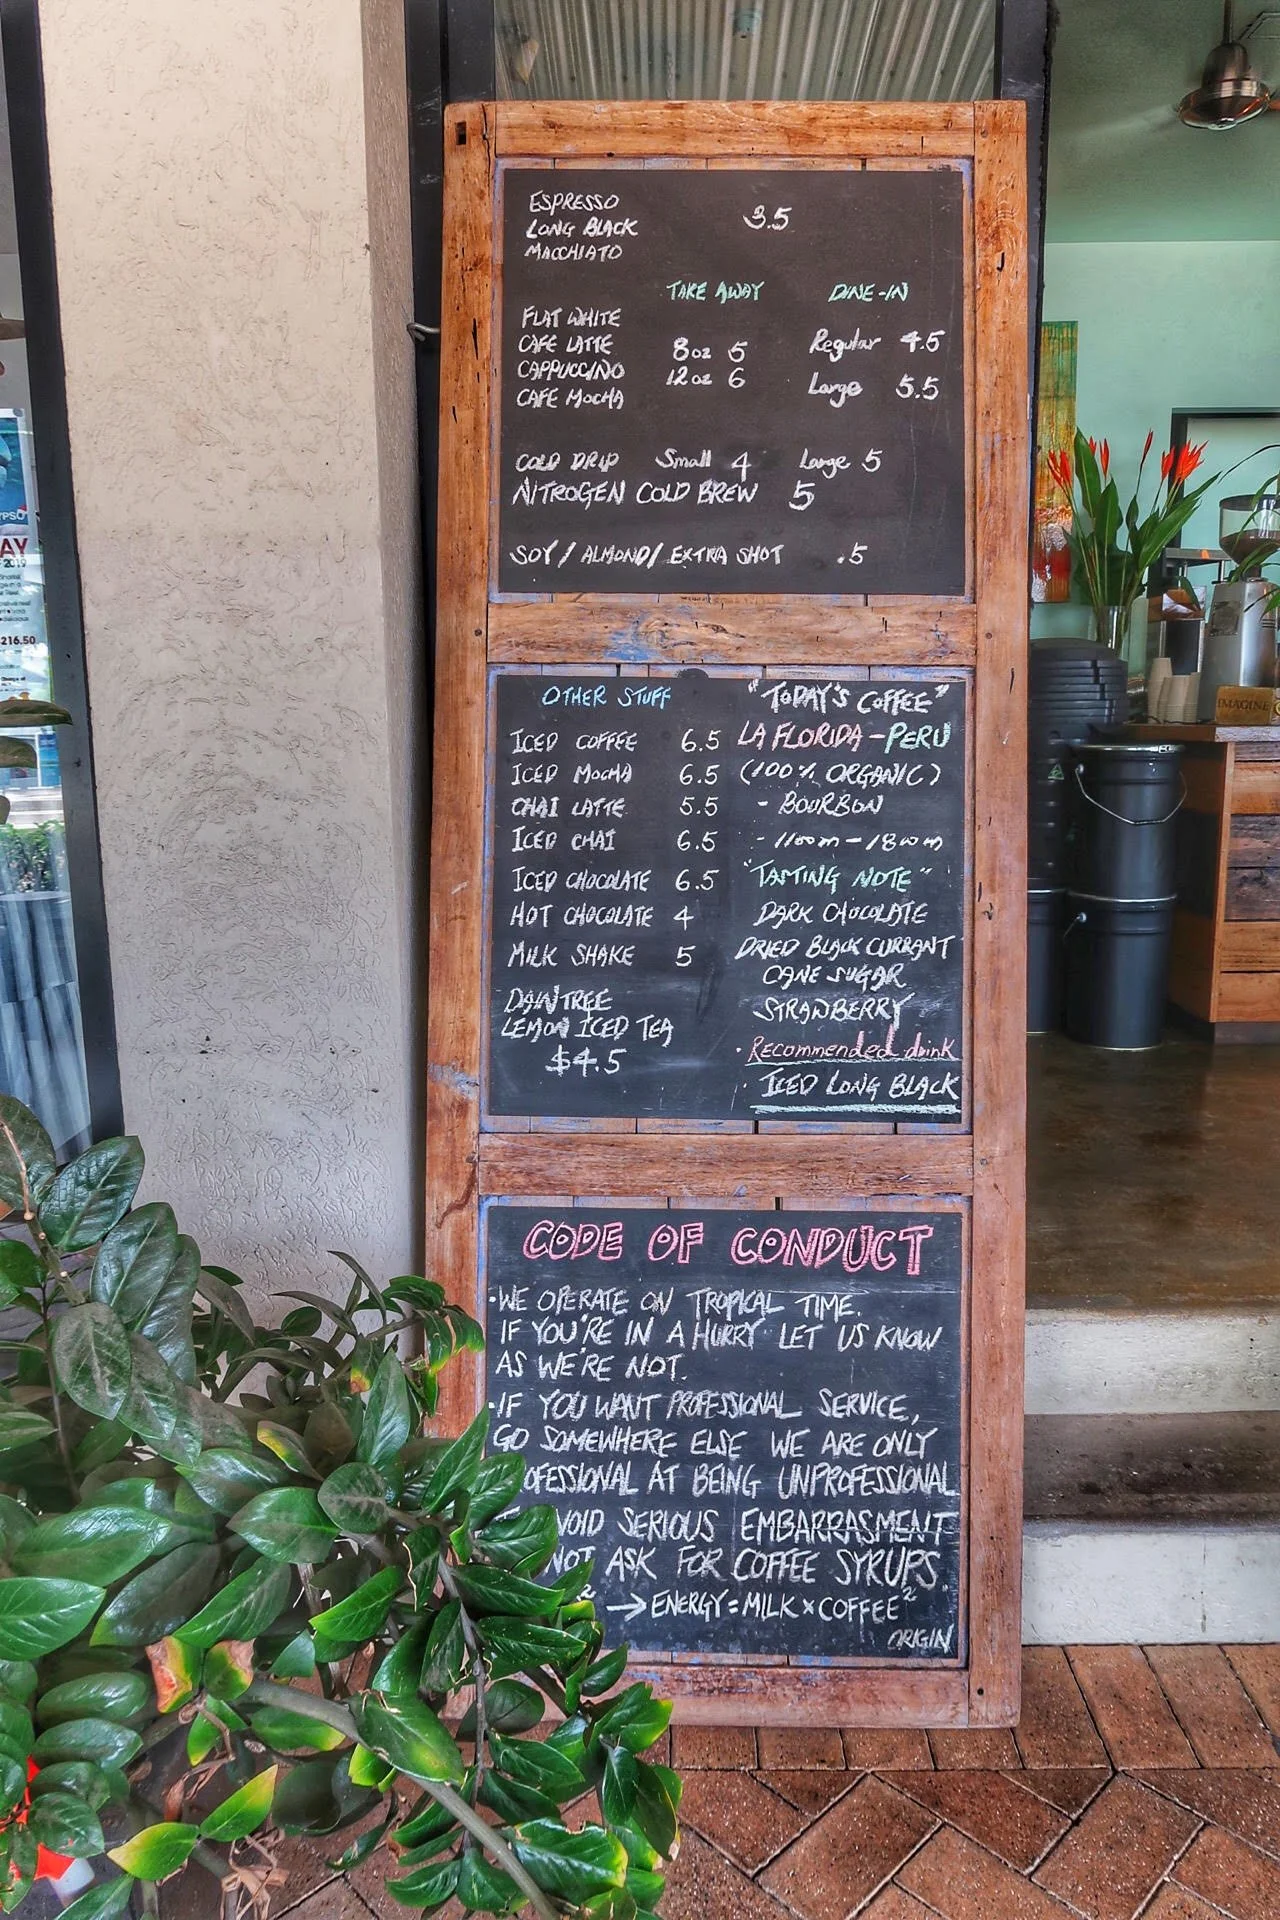 ESPRESSO
LONG BLACK 3.5
MACCHIATO
TAKE AWAY DINE-IN
FLAT WHITE
CAFE LATTE 8oz 5 Regular 4.5
CAPPUCCINO 12oz 6 Large 5.5
CAFE MOCHA
COLD DRIP Small 4 Large 5
NITROGEN COLD BREW 5
SOY / ALMOND / EXTRA SHOT .5
OTHER STUFF
ICED COFFEE 6.5
ICED MOCHA 6.5
CHAI LATTE 5.5
ICED CHAI 6.5
ICED CHOCOLATE 6.5
HOT CHOCOLATE 4
MILK SHAKE 5
DAINTREE
LEMON ICED TEA
$4.5
"TODAY'S COFFEE"
LA FLORIDA - PERU
(100% ORGANIC)
- BOURBON
- 1100m - 1800m
"TAMTING NOTE"
DARK CHOCOLATE
DRIED BLACK CURRANT
CANE SUGAR
STRAWBERRY
· Recommended drink
· ICED LONG BLACK
CODE OF CONDUCT
· WE OPERATE ON TROPICAL TIME.
IF YOU'RE IN A HURRY LET US KNOW
AS WE'RE NOT.
· IF YOU WANT PROFESSIONAL SERVICE,
GO SOMEWHERE ELSE WE ARE ONLY
OFESSIONAL AT BEING UNPROFESSIONAL
VOID SERIOUS EMBARRASMENT
NOT ASK FOR COFFEE SYRUPS
² → ENERGY = MILK × COFFEE²
ORIGIN
IMAGINE
AY
2019
$216.50